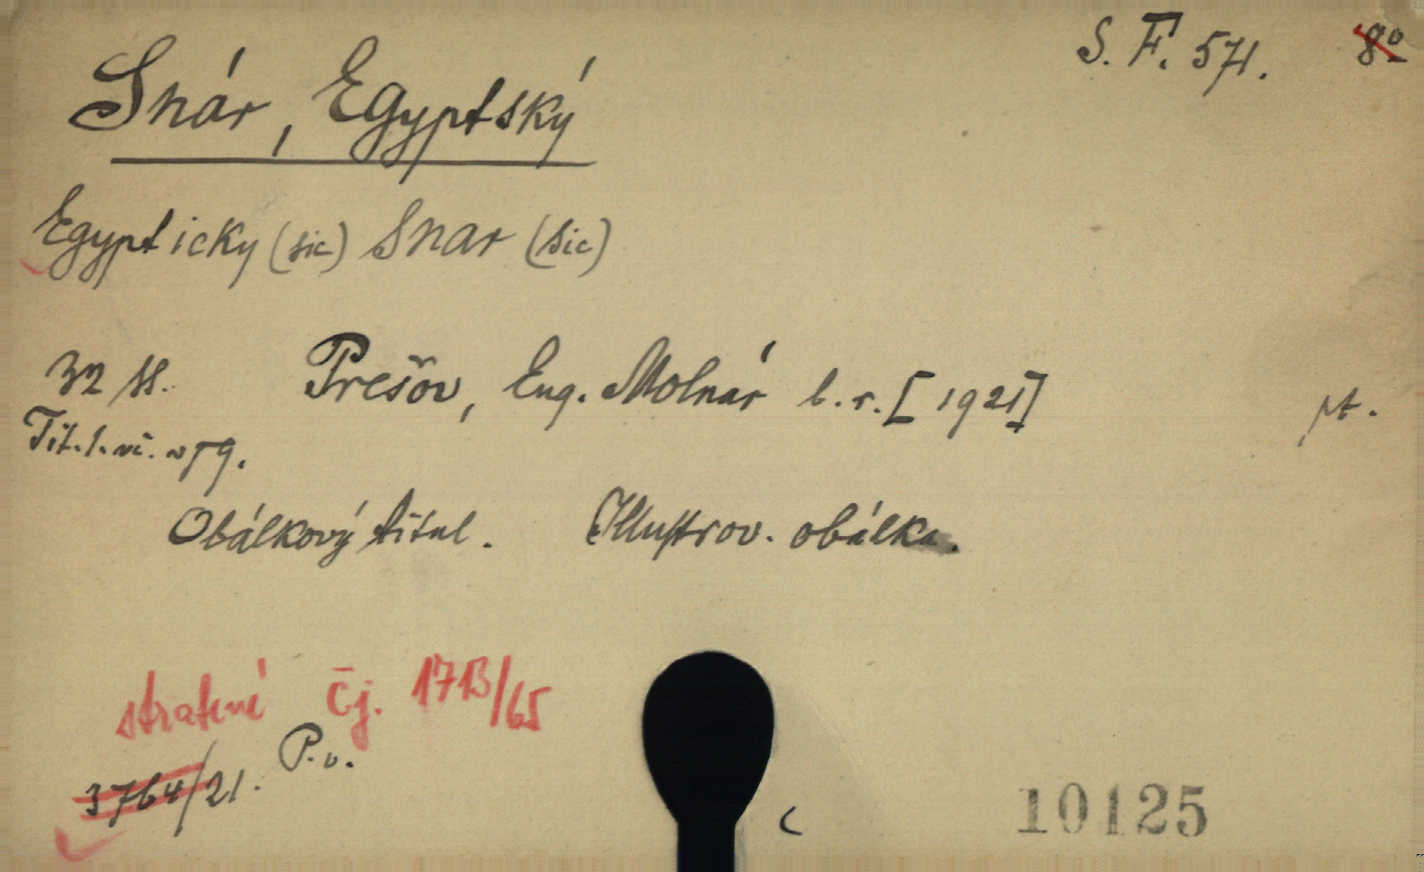 S. F. 571. 8º
Snár, Egyptský
Egypticky (sic) Snar (sic)
32 ss. Prešov, Eug. Molnár b. r. [1921]
Tit. l. vč. v pg.
Obálkový titul. Illustrov. obálka.
stratené čj. 1713/65
3764/21. P. v.
10125